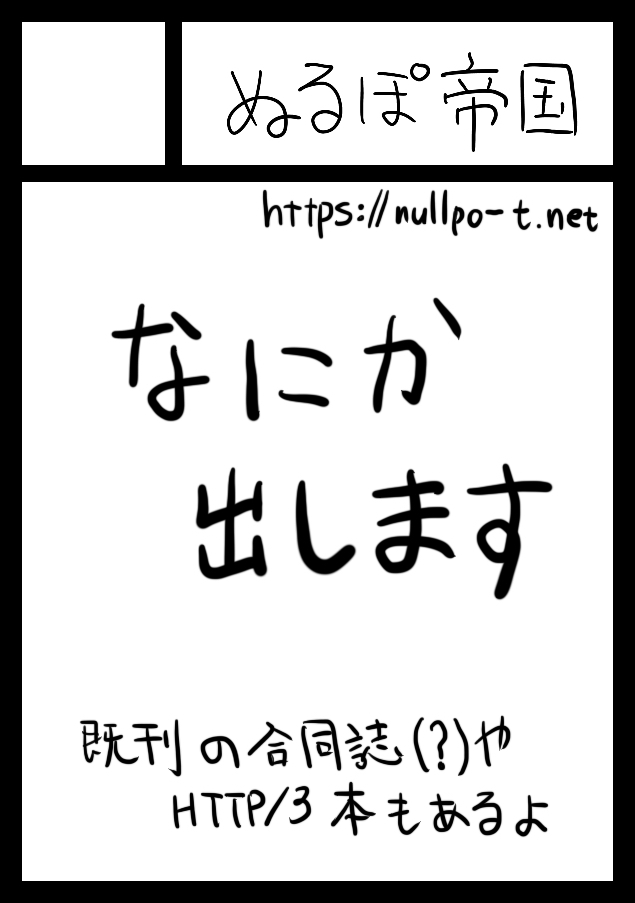 ぬるぽ帝国
https://nullpo-t.net
なにか
出します
既刊の合同誌(?)や
HTTP/3本もあるよ